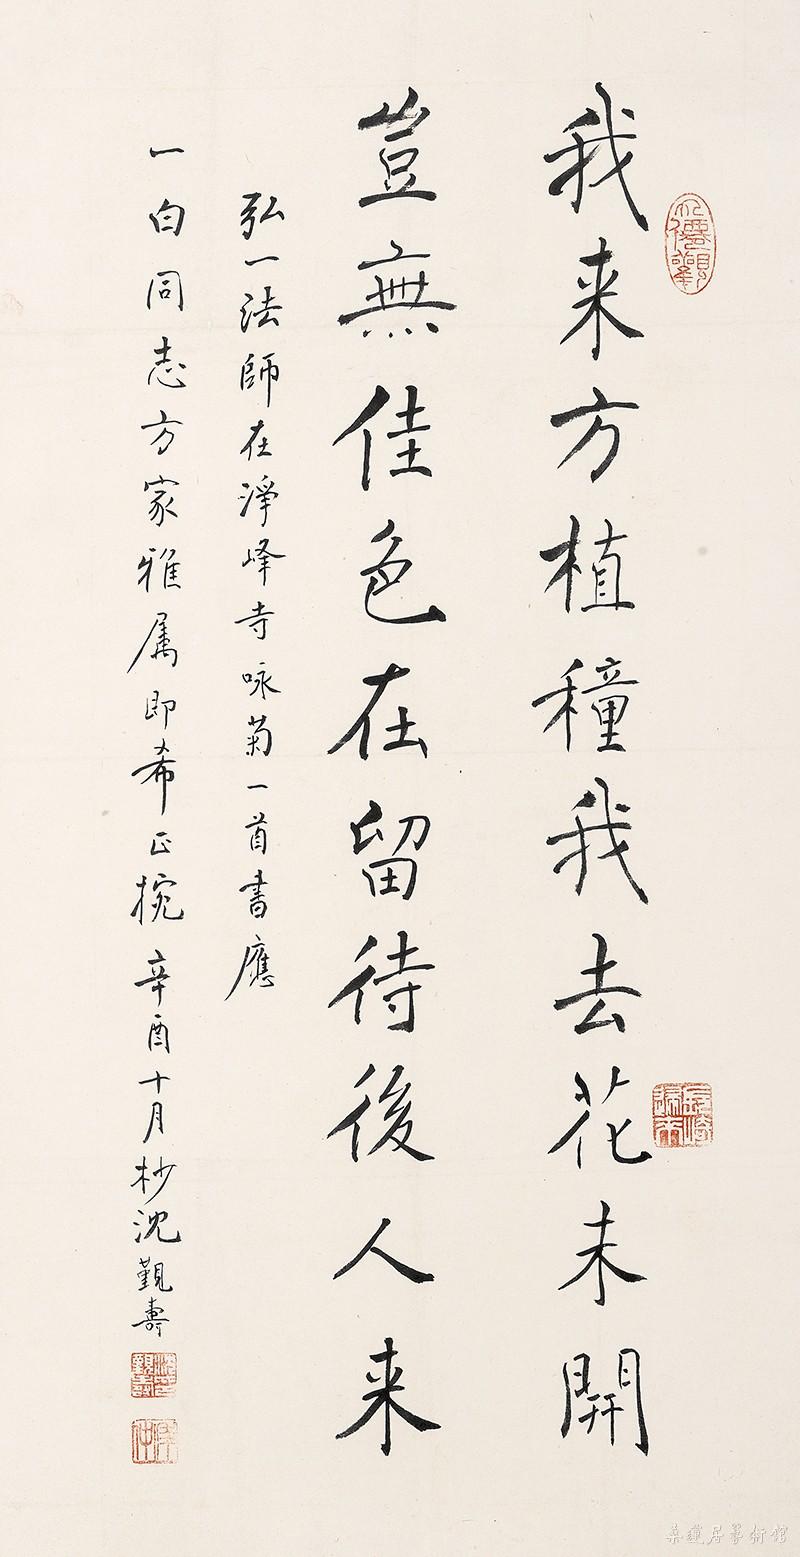 我来方植穜我去花未開
豈無佳色在留待後人来
弘一法師在淨峰寺咏菊一首書應
一白同志方家雅属即希正捥辛酉十月杪沈觐壽